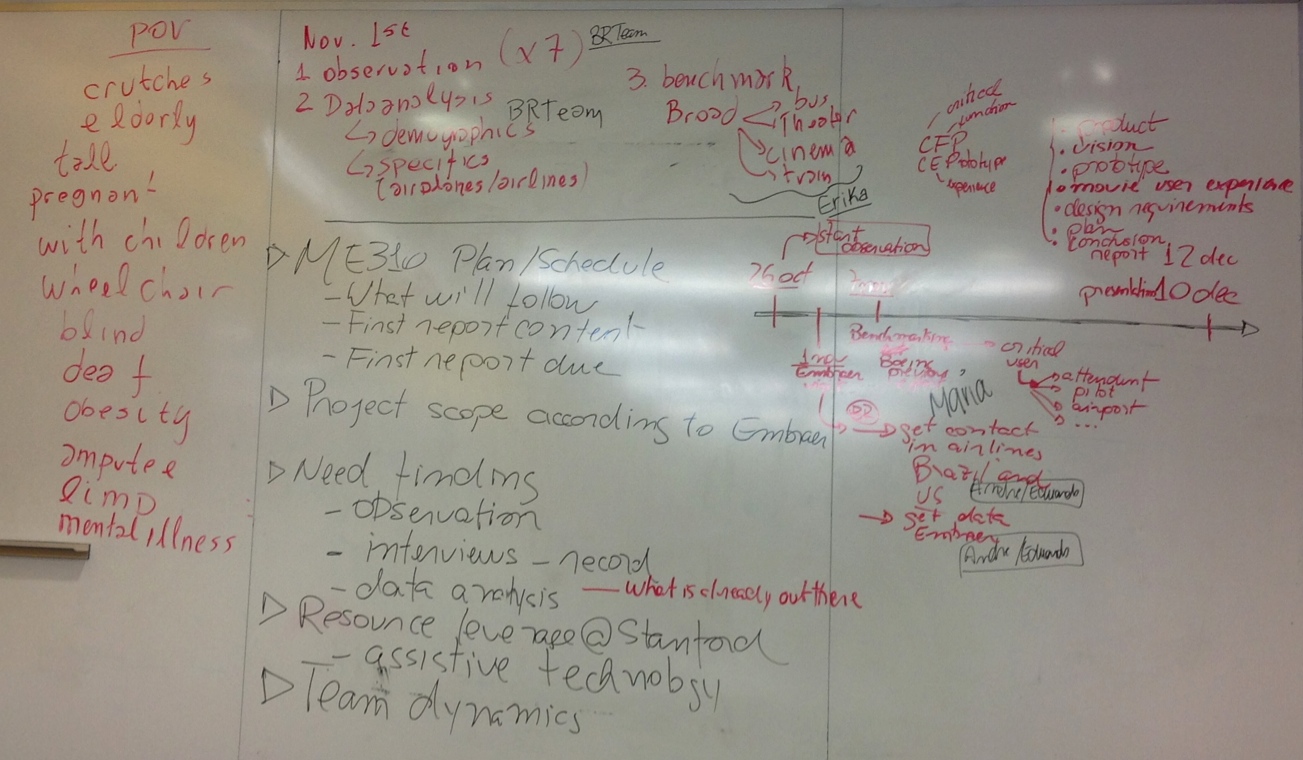 POV
crutches
eldorly
tall
pregnant
with children
wheel chair
blind
deaf
obesity
amputee
limp
mental illness
Nov. 1st
1 observation (x7) BRTeam
2 Data analysis BRTeam
↳ demographics
↳ specifics
(airplanes/airlines)
3. benchmark
Broad
bus
Theater
cinema
train
Erika
▷ ME310 Plan/Schedule
- What will follow
- First report content
- First report due
▷ Project scope according to Embraer
▷ Need finding
- observation
- interviews - record
- data analysis — what is already out there
▷ Resource leverage@Stanford
- assistive technology
▷ Team dynamics
critical
function
CFP
CEPrototype
experience
• product
• vision
• prototype
• movie user experience
• design requirements
• plan
conclusion
report 12 dec
presentation 10 dec
start
observation
26 oct
1 nov
Embraer
Benchmarking
Boeing
previous
Maria
critical
user
attendant
pilot
airport
...
→ get contact
in airlines
Brazil and
US
Andre/Eduardo
→ get data
Embraer
Andre/Eduardo